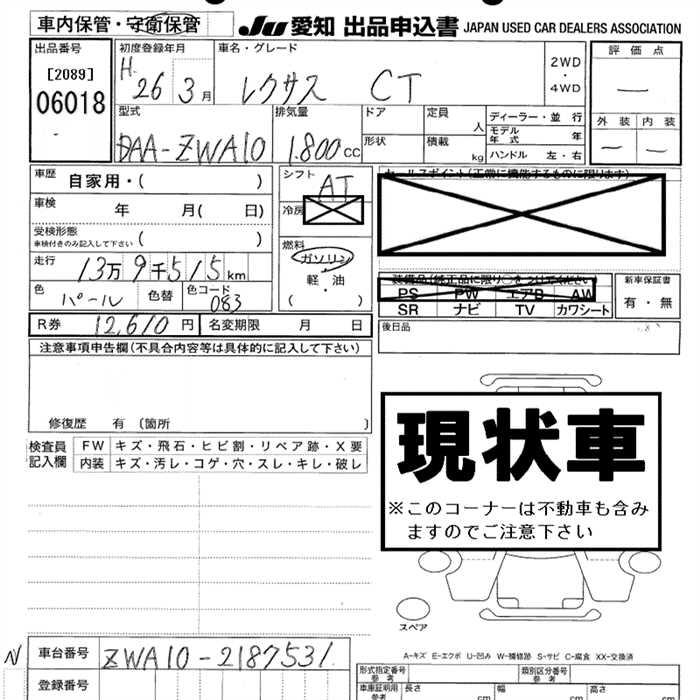 車内保管・守衛保管 JU 愛知 出品申込書 JAPAN USED CAR DEALERS ASSOCIATION
出品番号 初度登録年月 車名・グレード 2WD・4WD 評価点
[2089] H 26 3月 レクサス CT —
06018 外装 内装
型式 排気量 ドア 定員 人 ディーラー・並行 — —
DAA-ZWA10 1.800cc 形状 積載 kg モデル年式 年
ハンドル 左・右
車歴 自家用・( ) シフト AT セールスポイント(正常に機能するものに限ります)
車検 年 月( 日) 冷房
受検形態 ( )
車検付きのみ記入して下さい
燃料
ガソリン
走行 13万9千515km 軽・油
( )
装備品(純正品に限り○をつけてください) 新車保証書
色 パール 色替 色コード 083 PS PW エアB AW 有・無
SR ナビ TV カワシート
R券 12,610円 名変期限 月 日 後日品
注意事項申告欄(不具合内容等は具体的に記入して下さい)
修復歴 有 〔箇所 〕
検査員記入欄 FW キズ・飛石・ヒビ割・リペア跡・X要
内装 キズ・汚レ・コゲ・穴・スレ・キレ・破レ
現状車
※このコーナーは不動車も含み
ますのでご注意下さい
スペア
A-キズ E-エクボ U-凹み W-補修跡 S-サビ C-腐食 XX-交換済
N 車台番号 ZWA10-2187531 型式指定番号 参考 類別区分番号 参考
登録番号 車庫証明用 参考 長さ cm 幅 cm 高さ cm